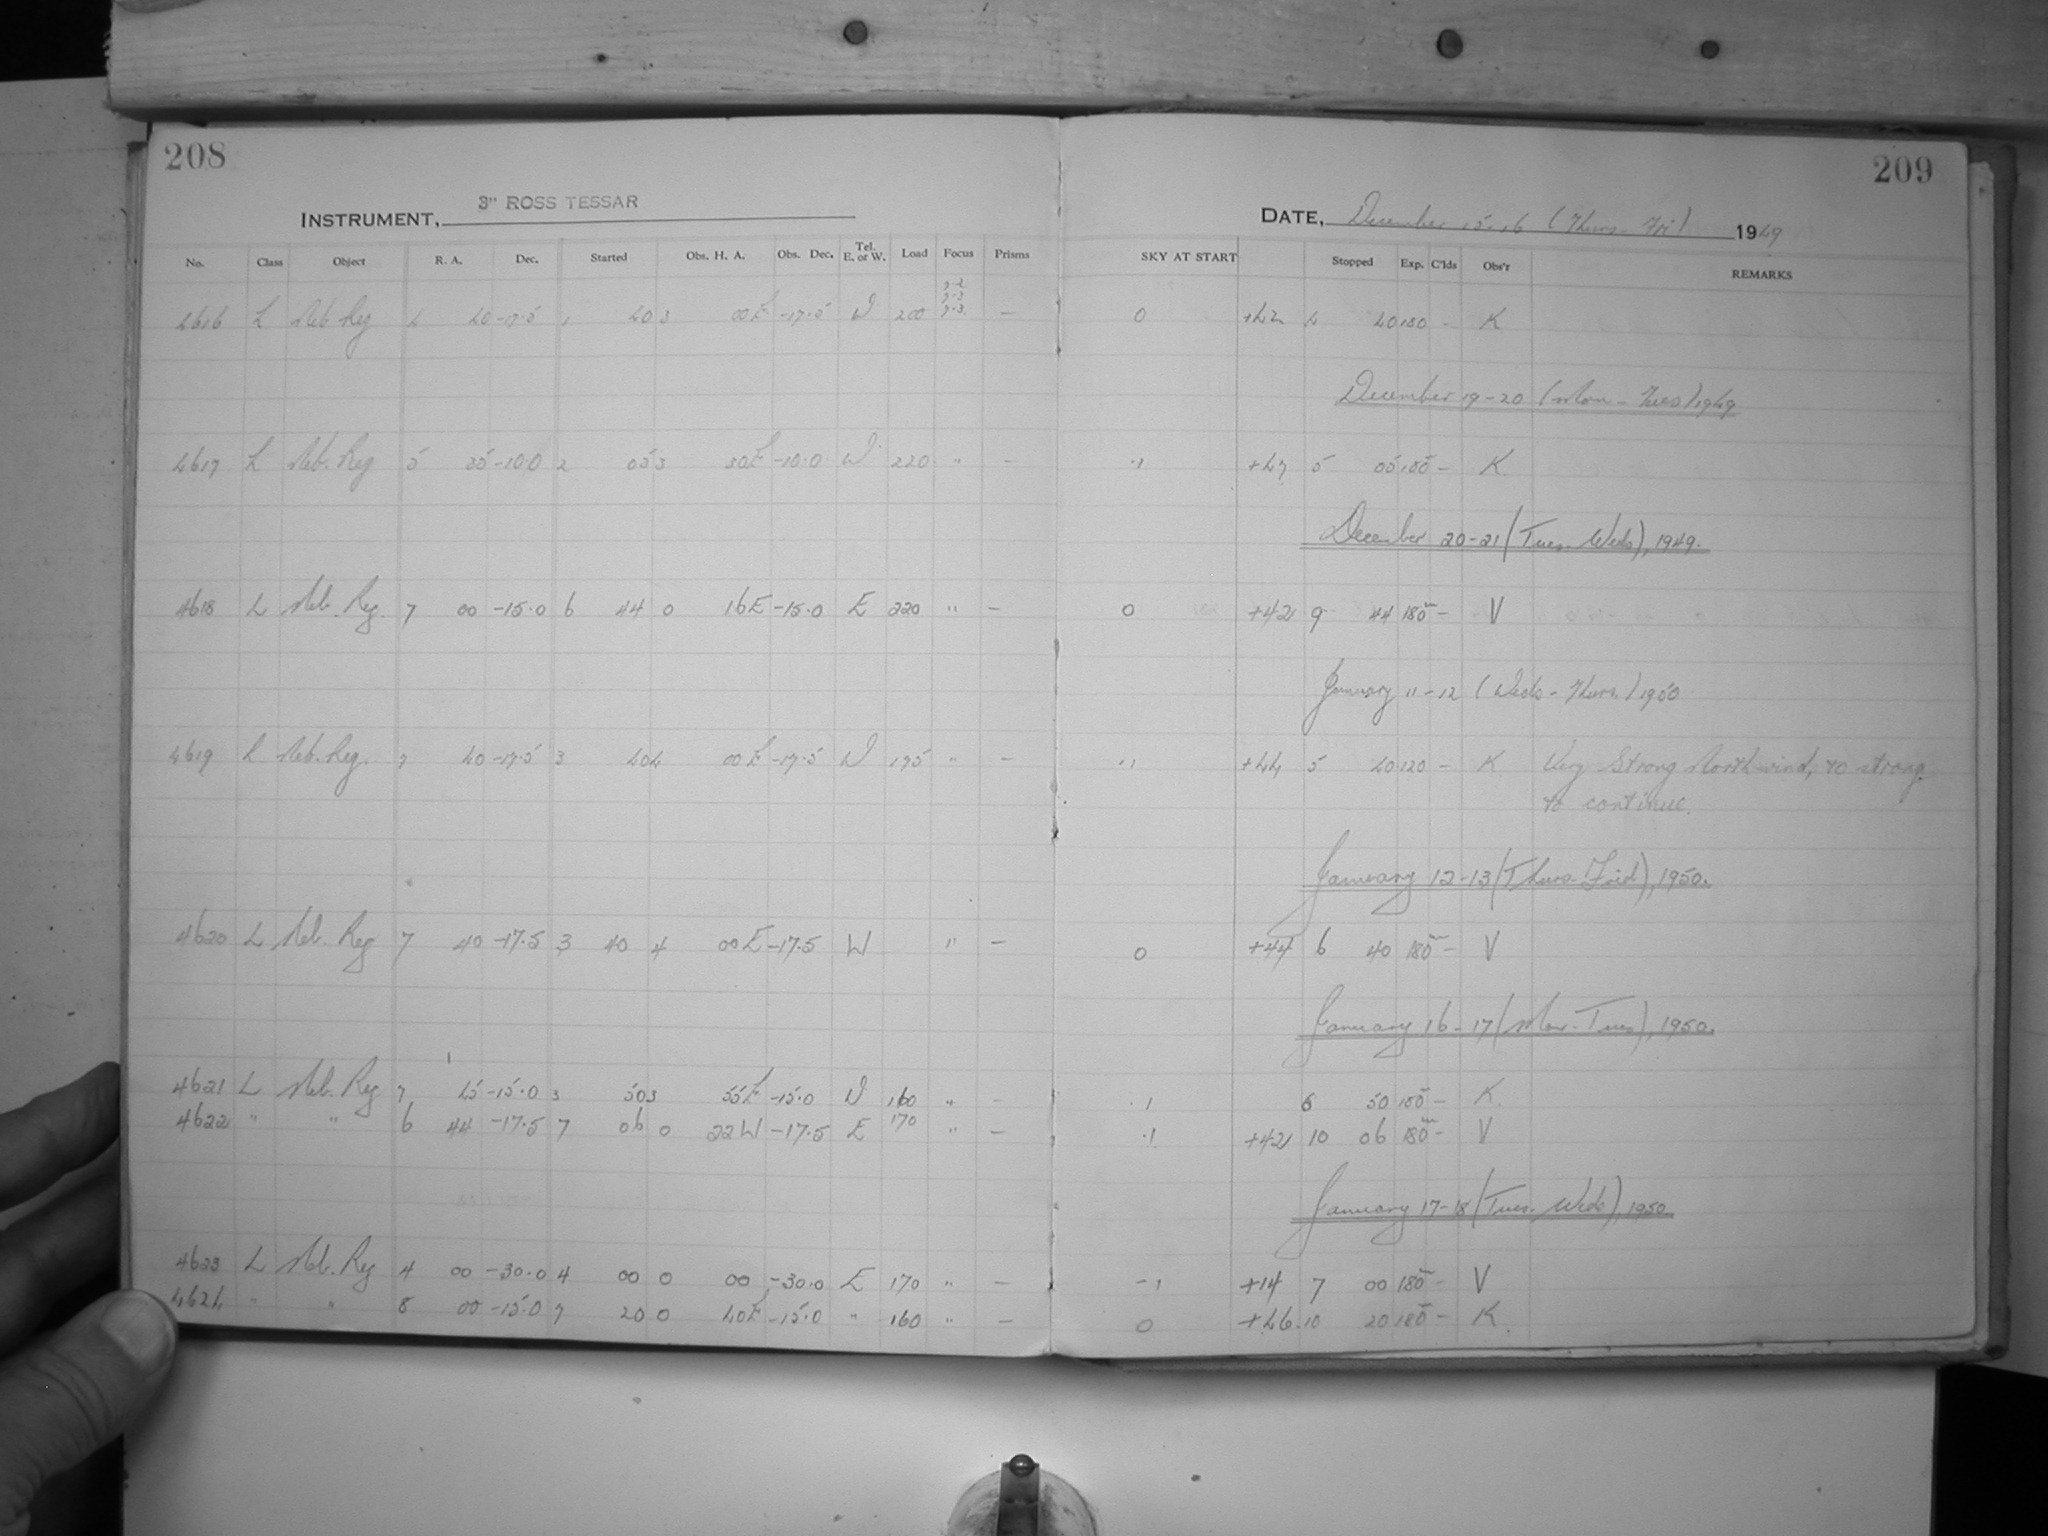 208
INSTRUMENT, 3" ROSS TESSAR
No. Class Object R. A. Dec. Started Obs. H. A. Obs. Dec. Tel. E. or W. Load Focus Prisms
4616 L Neb Reg 4 40 -17.5 1 40 3 00E -17.5 W 200 —
4617 L Neb. Reg 5 35 -10.0 2 05 3 30E -10.0 W 220 " —
4618 L Neb. Reg. 7 00 -15.0 6 44 0 16E -15.0 E 220 " —
4619 L Neb. Reg. 7 40 -17.5 3 40 4 00E -17.5 W 175 " —
4620 L Neb. Reg 7 40 -17.5 3 40 4 00E -17.5 W " —
4621 L Neb. Reg 7 45 -15.0 3 50 3 55E -15.0 W 160 " —
4622 " " 6 44 -17.5 7 06 0 22W -17.5 E 170 " —
4623 L Neb. Reg 4 00 -30.0 4 00 0 00 -30.0 E 170 " —
4624 " " 8 00 -15.0 7 20 0 40E -15.0 " 160 " —
209
DATE, December 15-16 (Thurs-Fri) 1949
SKY AT START Stopped Exp. C'lds Obs'r REMARKS
0 +42 4 40 180 — K
December 19-20 (Mon-Tues) 1949
.1 +47 5 05 180 — K
December 20-21 (Tues-Weds), 1949.
0 +42 9 44 180 — V
January 11-12 (Weds-Thurs.) 1950
.1 +44 5 40 120 — K Very Strong North wind, to strong
to continue.
January 12-13 (Thurs-Frid), 1950.
0 +44 6 40 180 — V
January 16-17 (Mon-Tues), 1950.
.1 6 50 180 — K
.1 +42 10 06 180 — V
January 17-18 (Tues-Weds), 1950
-1 +14 7 00 180 — V
0 +46 10 20 180 — K